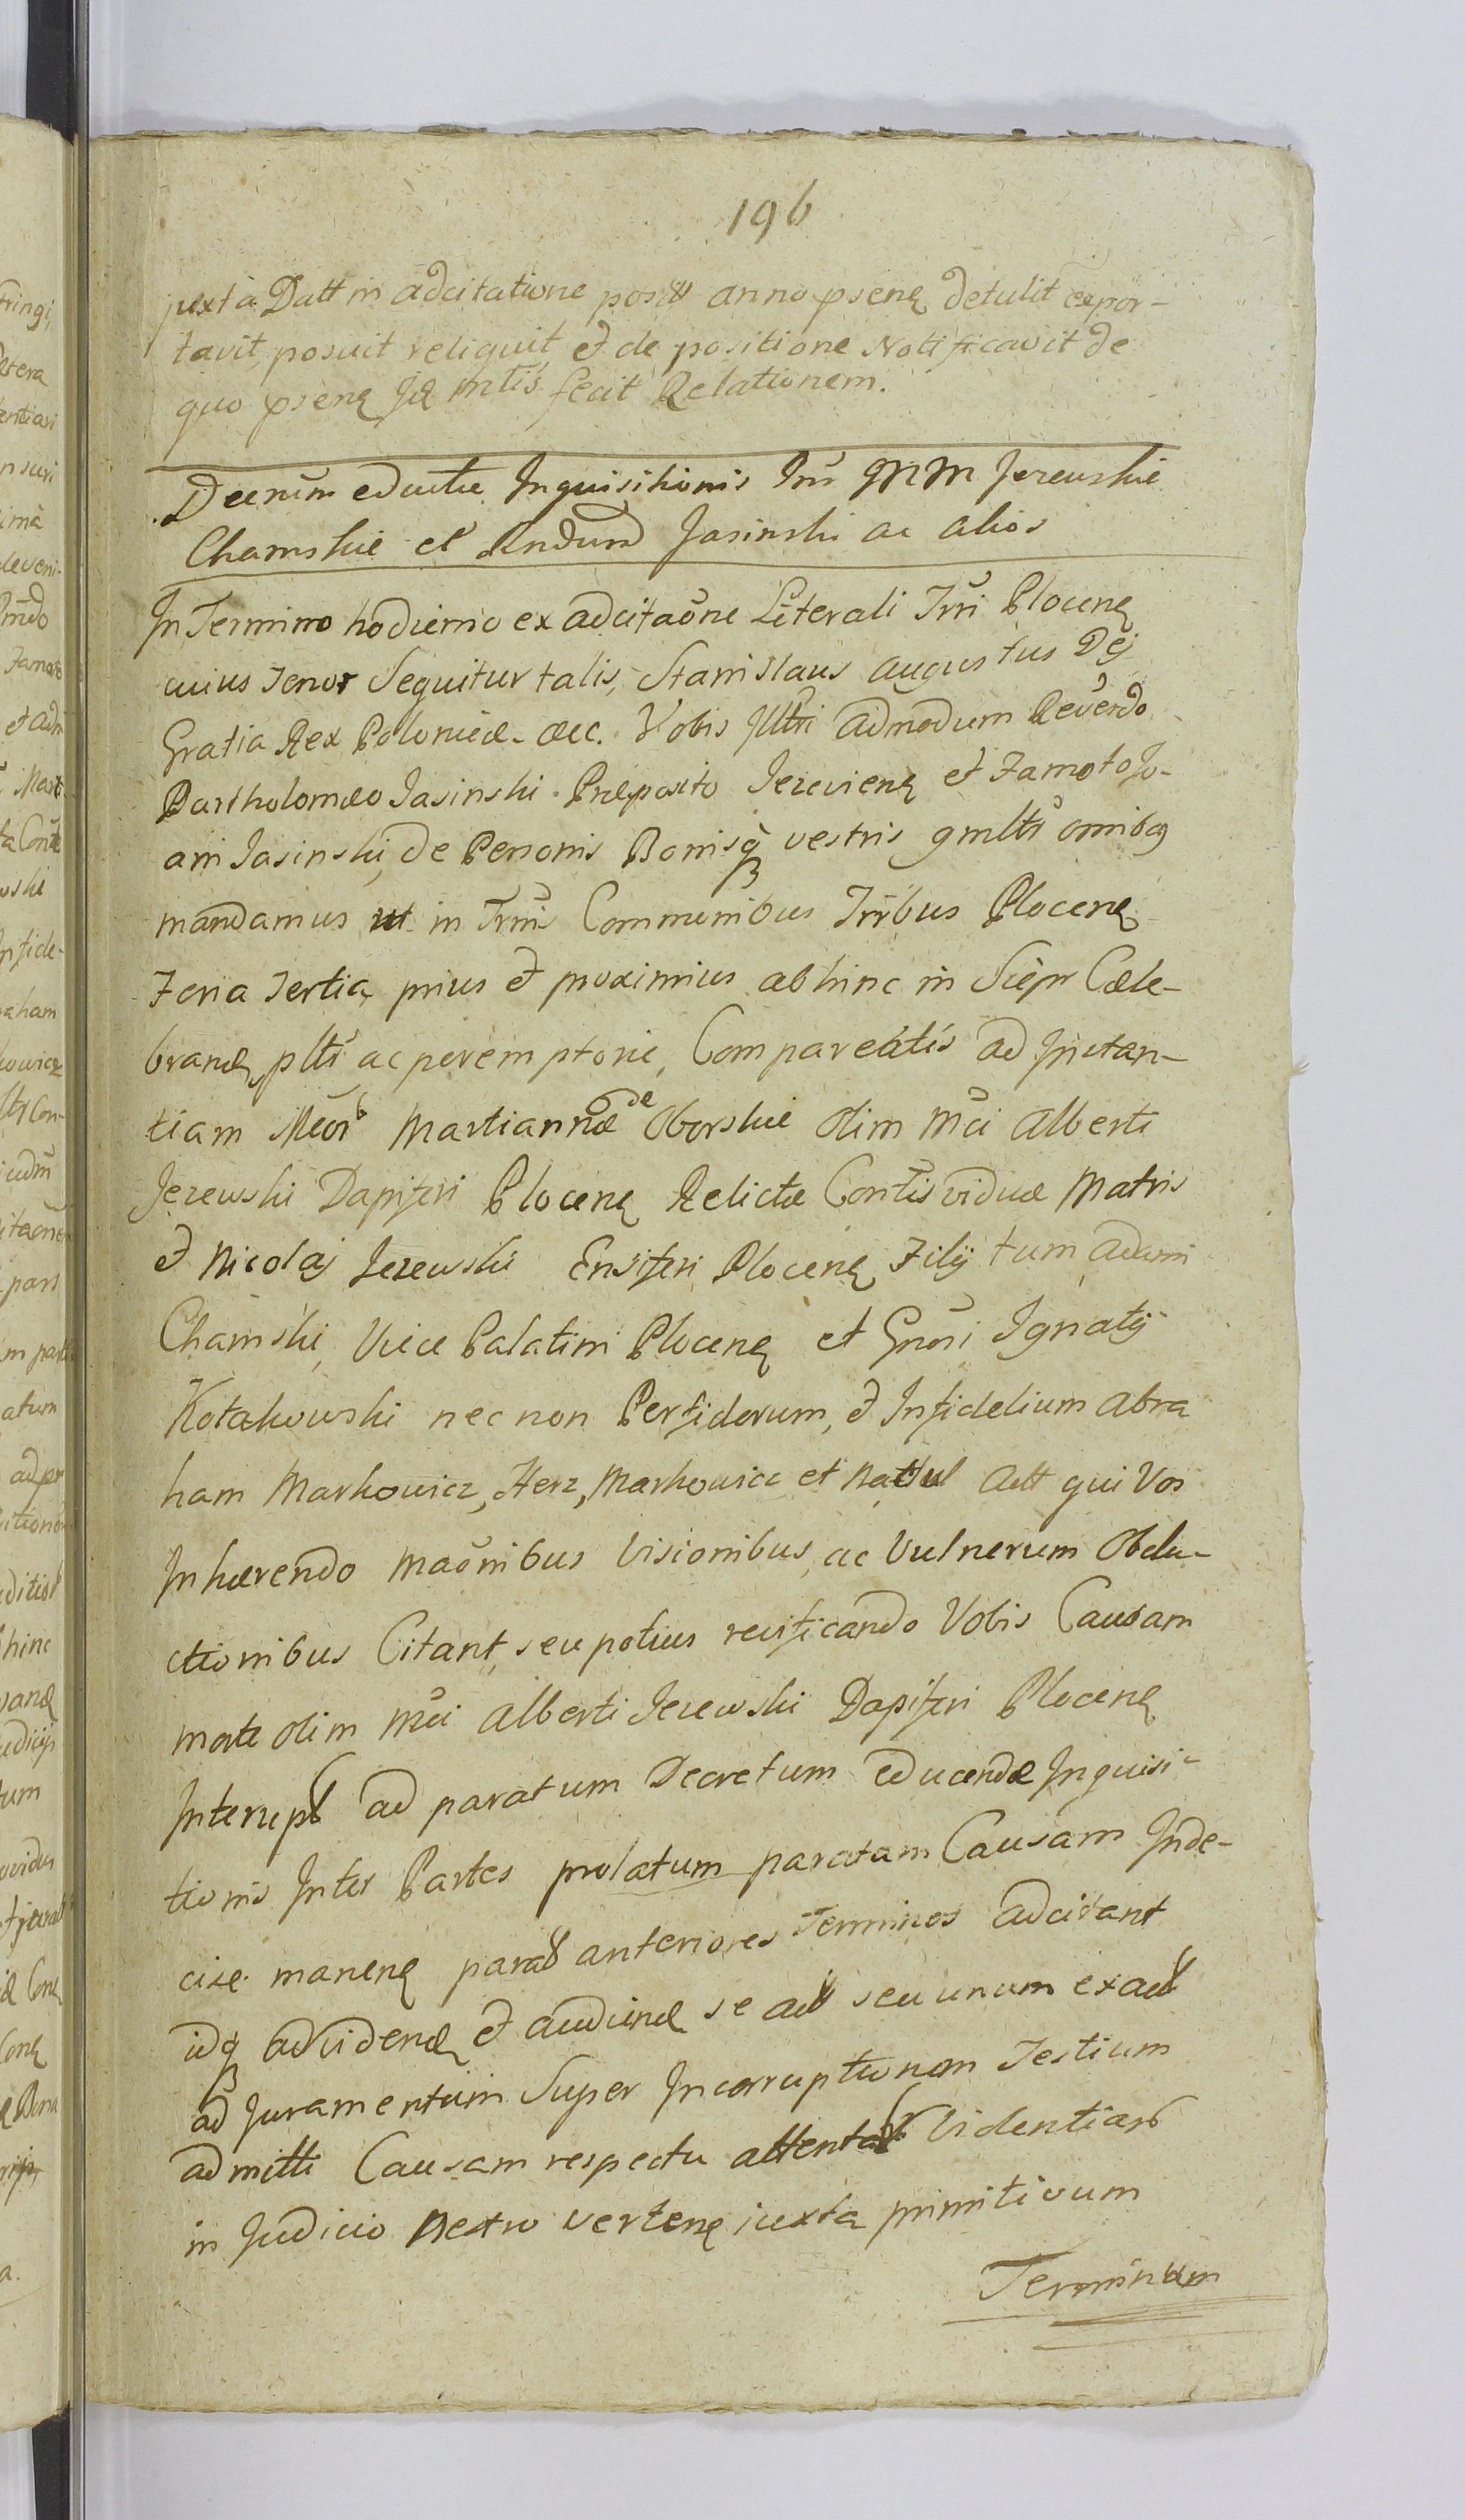 196
juxta Datt in adcitatione posit anno psenę detulit expor-
tavit, posuit reliquit, et de positione Notificavit de
quo psenę Jd mtis fecit Relationem.
Decrum eductæ Inquisitionis Int GMM Jezewskie
Chamskie et Rndum Jasinski ac alios
In Termino hodierno ex adcitaõne Literali Trri Plocenę
cuius Tenor Sequitur talis, Stanislaus Augustus Dej
Gratia Rex Poloniæ &c. Vobis Illtri admodum Reverdo
Bartholomæo Jasinski Præposito Jezevienę et Famoto Jo-
ani Jasinski, de Personis Bonisq vestris gnlltr omnibq
mandamus ut in Trmi Communibus Trribus Plocenę
Feria Tertia, prius et proximius abhinc in Sieprc Cæle-
brandę, pltr ac peremptorie, Compareatis ad Instan-
tiam Mcorb Martiannæ de Oborskie olim Mci Alberti
Jezewski Dapiferi Plocenę Relictæ Contis viduæ Matris
et Nicolaj Jezewski Ensiferi Plocenę Filij tum Adami
Chamski, Vice Palatini Plocenę et Gnosi Ignatij
Kotakowski nec non Perfidorum, et Infidelium Abra
ham Markowicz, Herz, Markowicz et Nattul Actt qui Vos
Inhærendo maõnibus Visionibus, ac Vulnerum Obdu-
ctionibus Citant, seu potius reicificando Vobis Causam
morte olim Mci Alberti Jezewski Dapiferi Plocenę
Interupt ad paratum Decretum educendæ Inquisi-
tionis Inter Partes prolatum paratam Causam Inde-
cise manenę parat anteriores Terminos adcitant
idq ad videndę et audiendę se act seu unum ex act
ad Juramentum Super Incorruptionem Testium
admitti Causam respectu attentat Videntiarb
in Judicio Nestro vertenę iuxta primitivum
Terminum